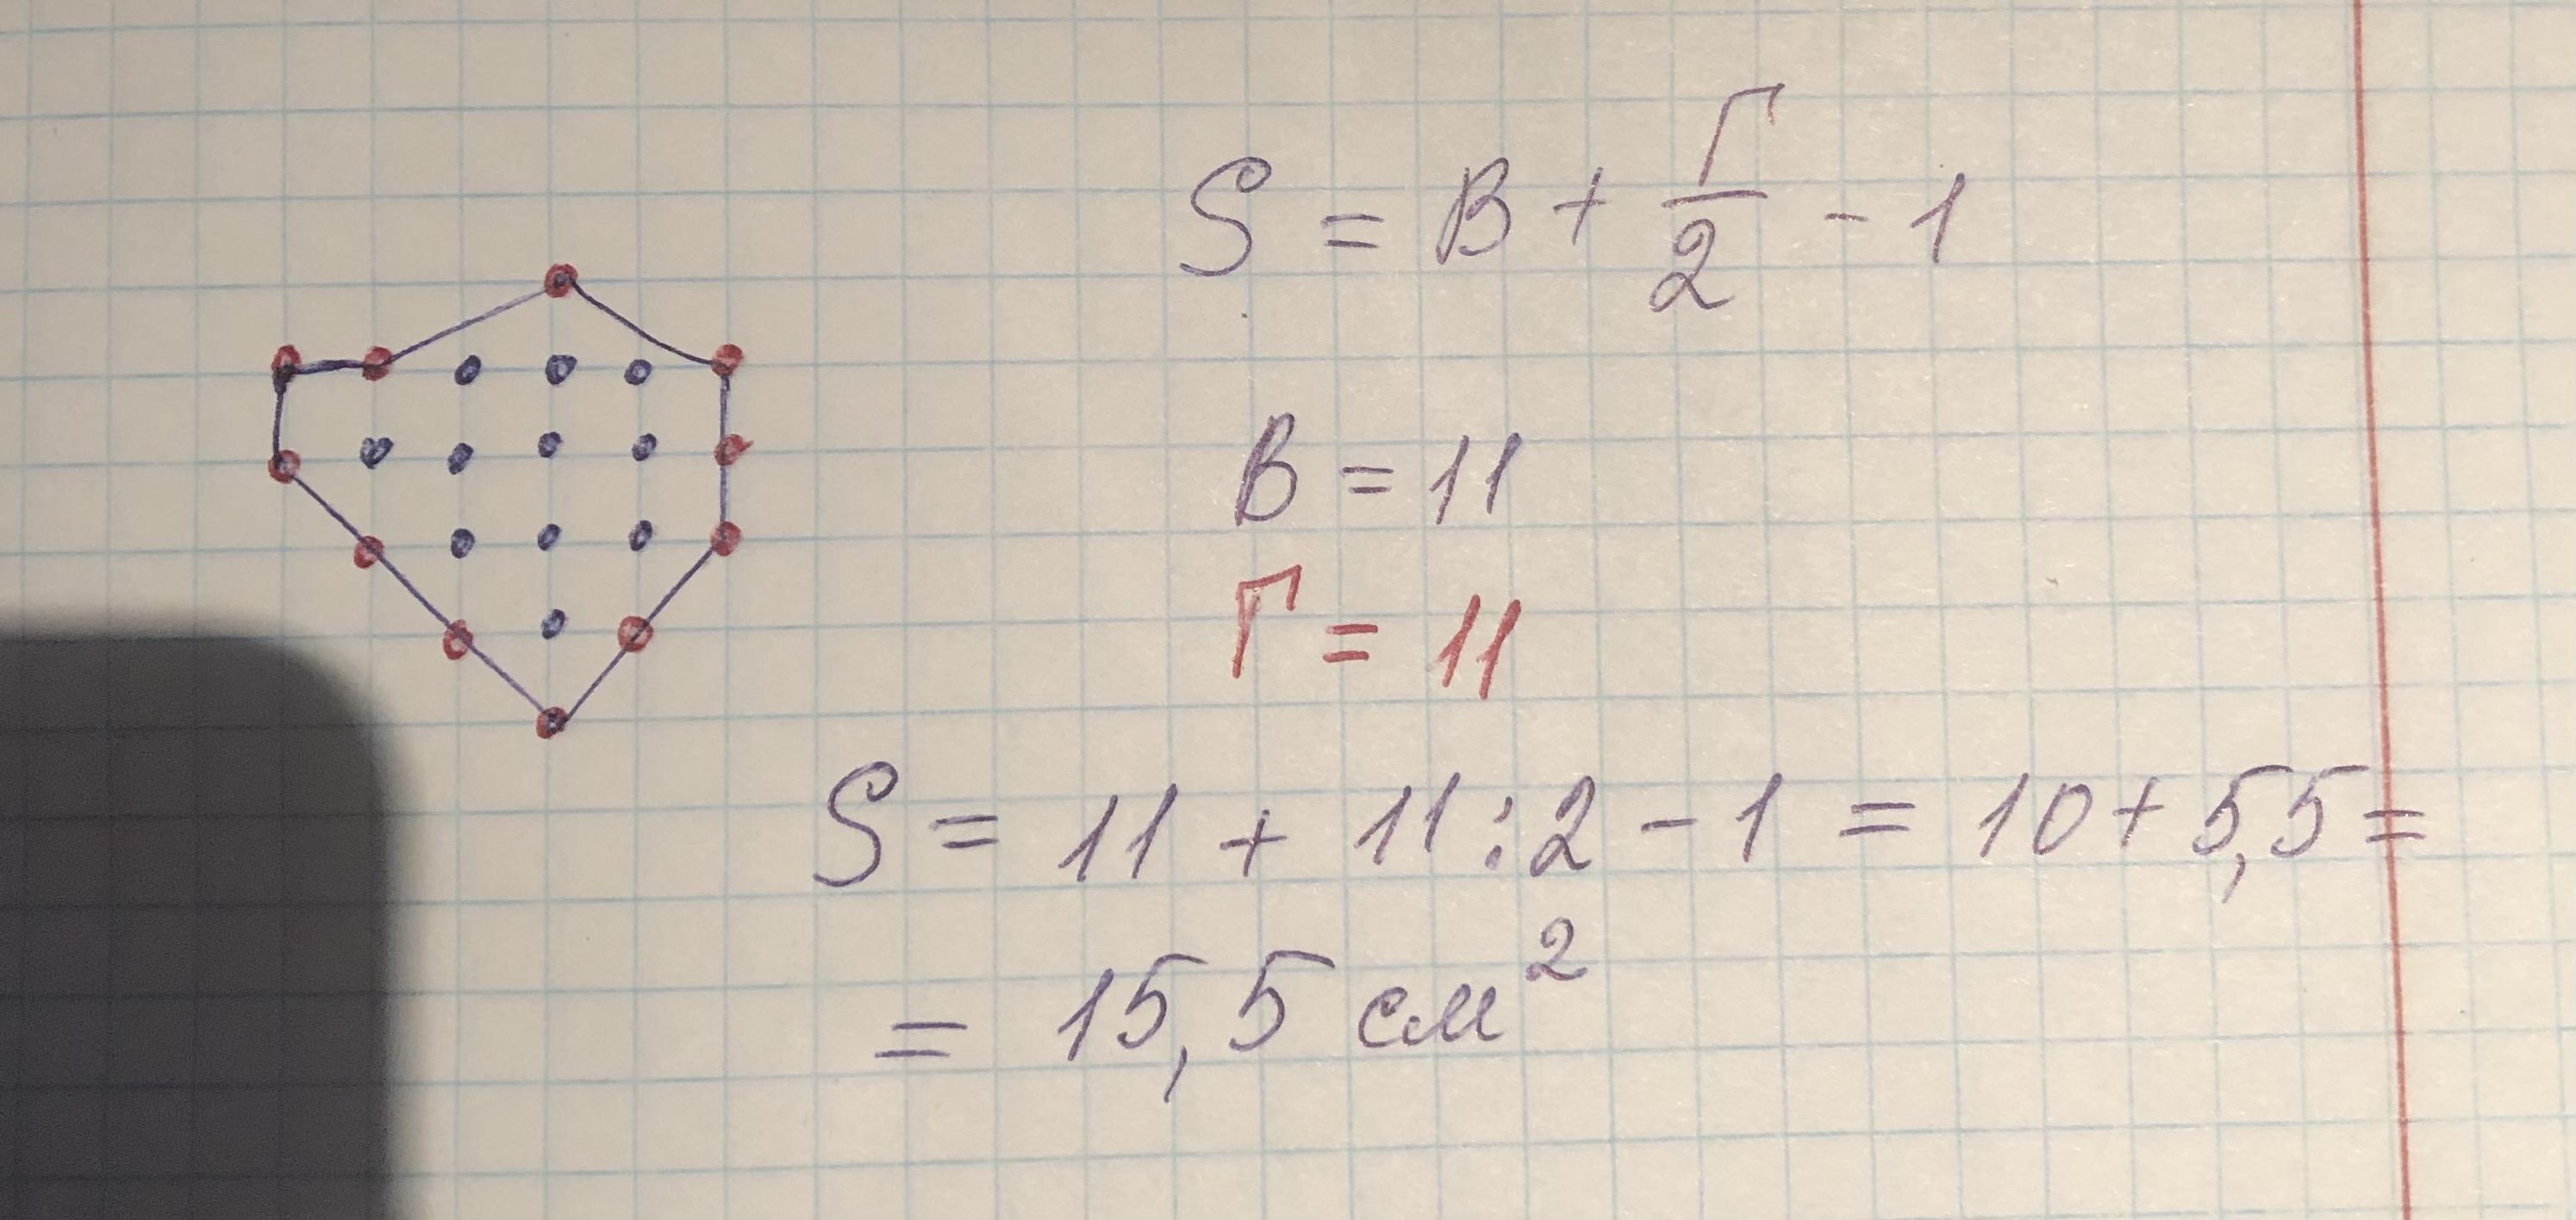 S = В + Г/2 - 1
В = 11
Г = 11
S = 11 + 11 : 2 - 1 = 10 + 5,5 =
= 15,5 см²